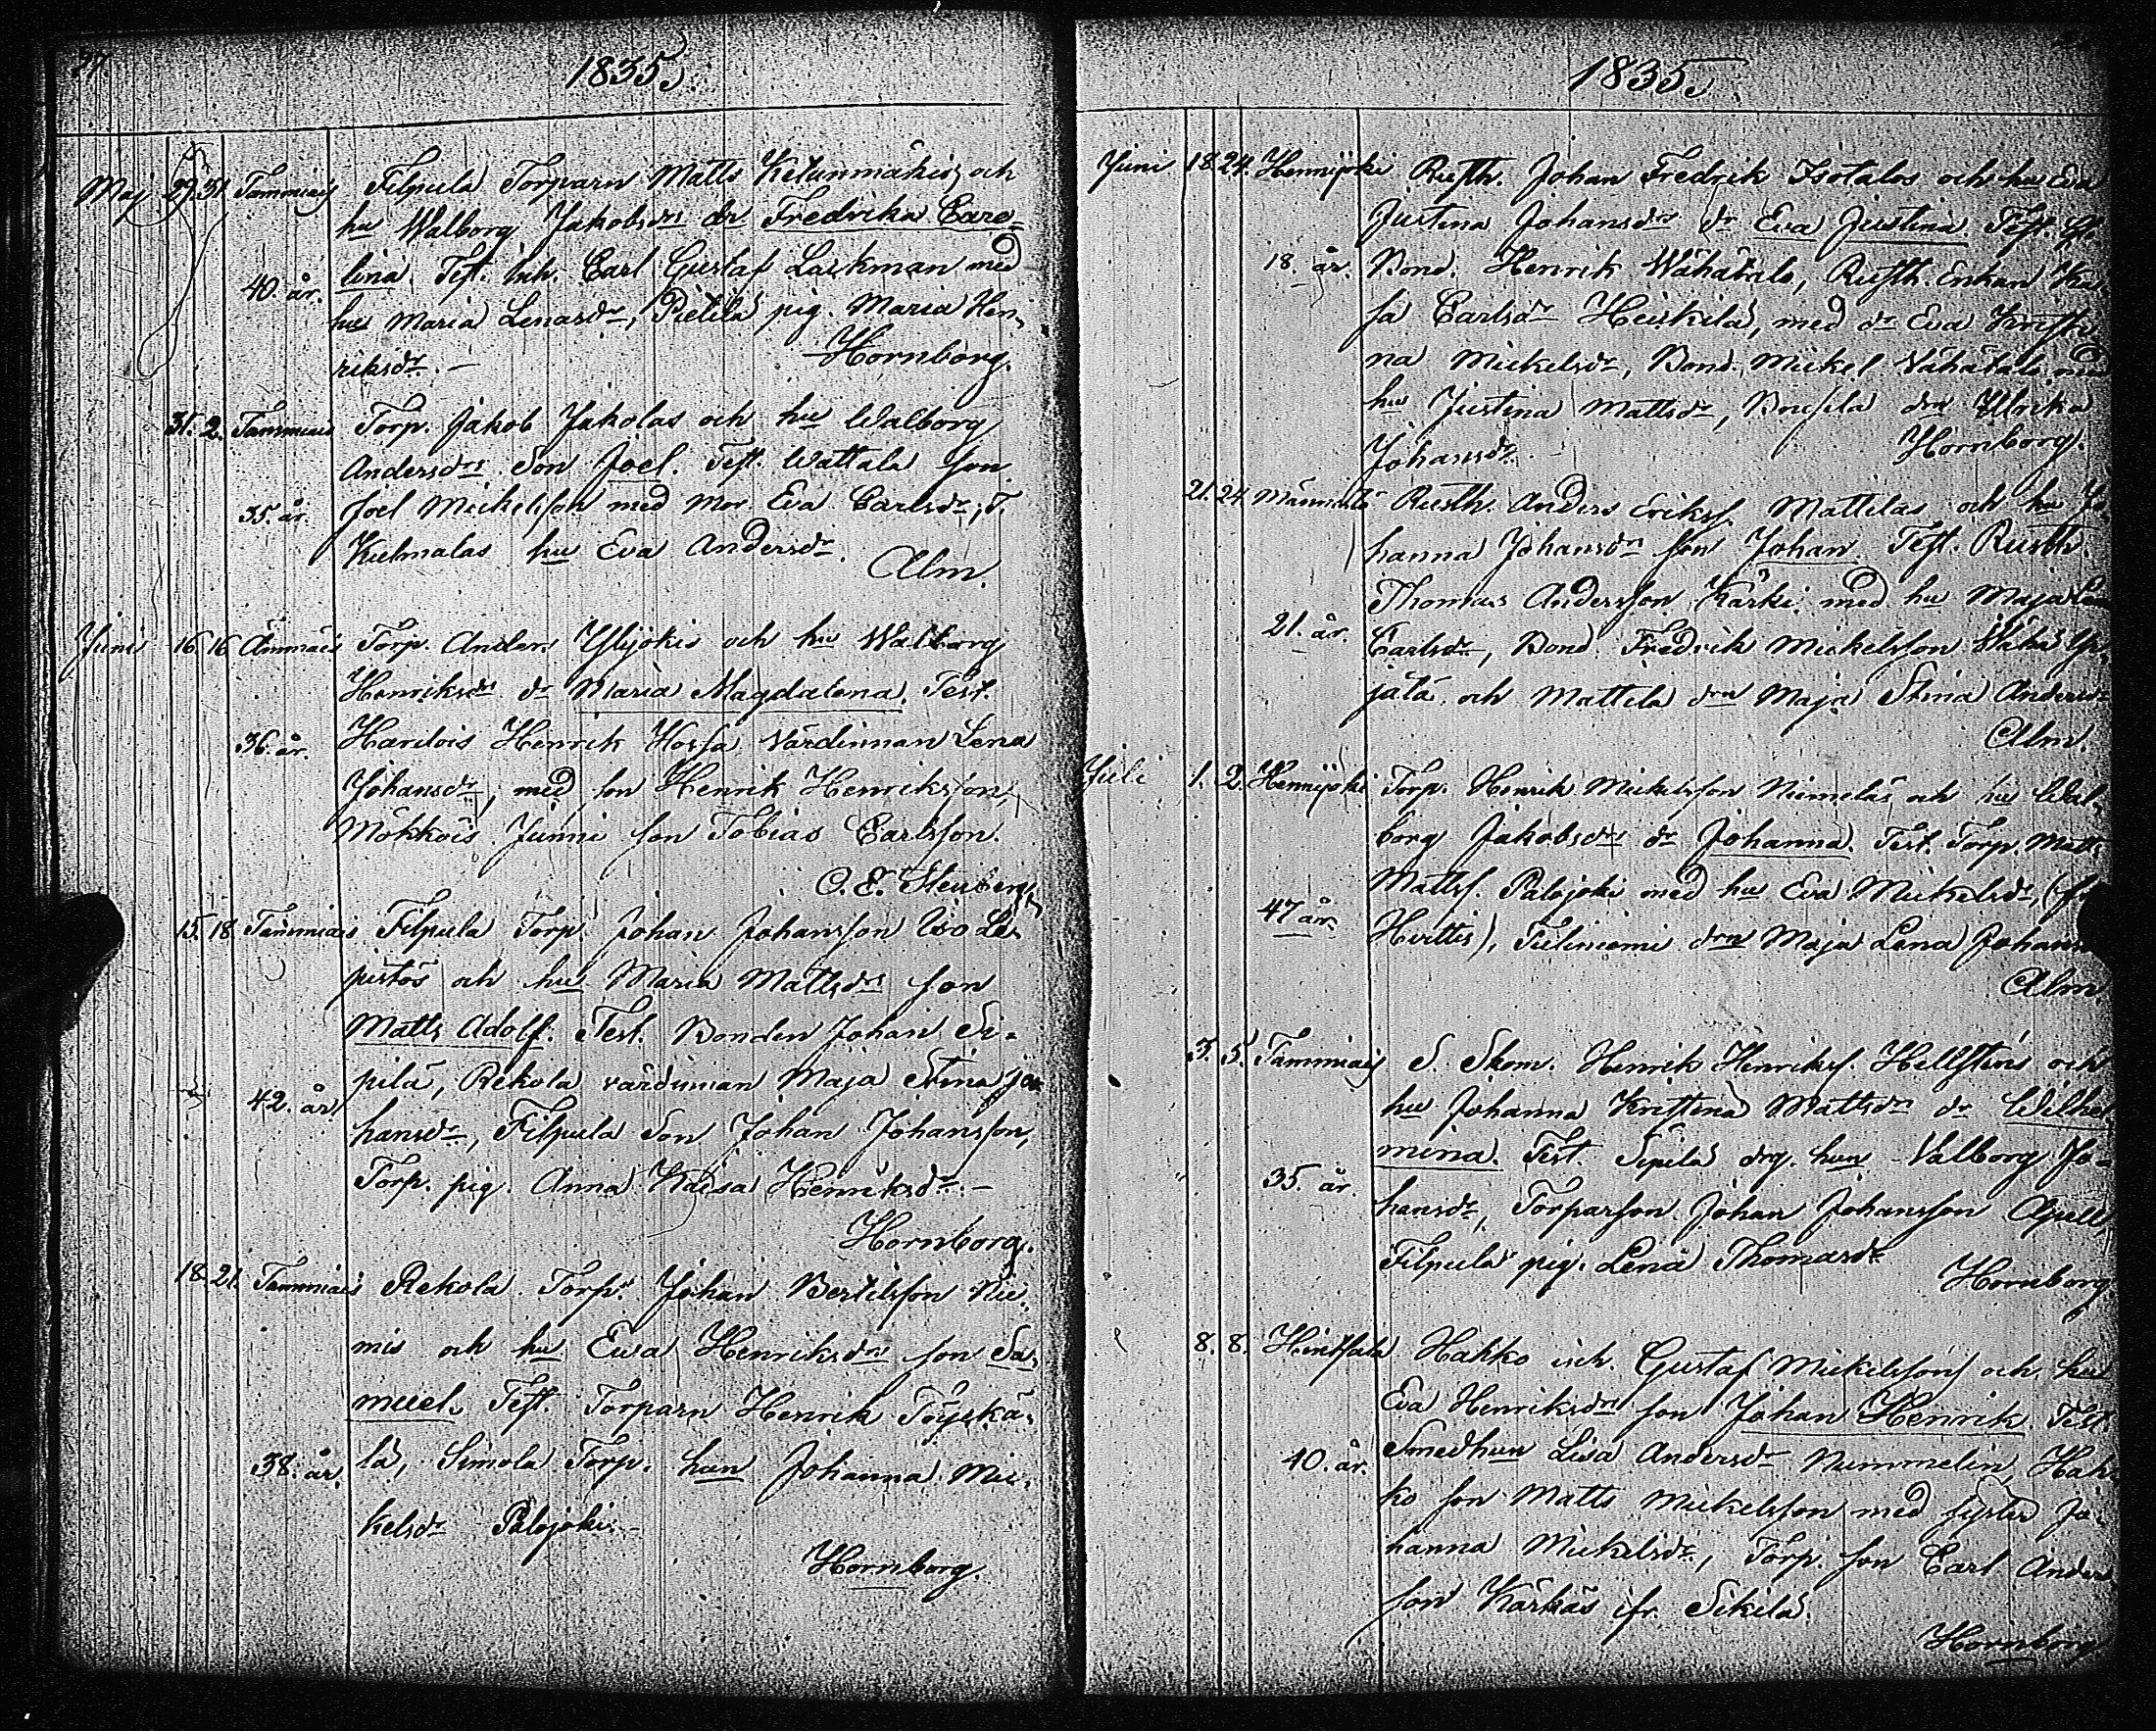 27.
1835.
Maj 29. 31. Tammiais Filpula Torparn Matts Ketunmäkis och
hu Walborg Jakobsdrs dr Fredrika Caro-
40. år. lina. Test. Inh. Carl Gustaf Lackman med
hu Maria Lenasdr, Pietilä pig. Maria Hen-
riksdr. — Hornborg.
31. 2. Tammiais Torp. Jakob Jakolas och hu Walborg
Andersdrs Son Joel. Test. Wattala son
35. år. Joel Mickelsson med mor Eva Carlsdr, T.
Kulmalas hu Eva Andersdr.
Alm.
Juni 16. 16 Ämmäis Torp. Anders Ylijokis och hu Walborg
Henriksdrs dr Maria Magdalena. Test.
36. år. Hardois Henrik Hossa värdinnan Lena
Johansdr, med son Henrik Henriksson,
Mökkois Junni son Tobias Carlsson.
O. E.
15. 18. Tammiais Filpula Torp. Johan Johansson Iso Le-
pistös och hu Maria Mattsdrs son
Matts Adolf. Test. Bonden Johan Si-
42. år. pilä, Rekola värdinnan Maja Stina Jo-
hansdr, Filpula Son Johan Johansson,
Torp. pig. Anna Kaisa Henriksdr. —
Hornborg.
18. 21. Tammiais Rekola Torp. Johan Bertilsson Nie-
mis och hu Ewa Henriksdrs son Sa-
muel. Test. Torparn Henrik Töyskä-
38. år. lä, Simola Torp. hun Johanna Mic-
kelsdr Palojoki. —
Hornborg.
1835.
Juni 18. 24. Hennijoki Rusth. Johan Fredrik Isotalos och hu Eva
Justina Johansdrs dr Eva Justina. Test.
18. år. Bond. Henrik Wähätalo, Rusth. Enkan
sa Carlsdr Heikkilä, med dr Eva Kristi-
na Mickelsdr, Bond. Mickel Vähätalo med
hu Justina Mattsdr, drn Ulrika
Johansdr. Hornborg.
21. 24 Rusth. Anders Erikss. Mattilas och hu Jo-
hanna Johansdrs son Johan. Test. Rusth.
Thomas Andersson Kärki med hu Maja
21. år. Carlsdr, Bond. Fredrik Mickelsson Wähä
jälä, och Mattila drn Maja Stina Andersdr
Alm.
Juli 1. 2. Hennijoki Torp. Henrik Mickelsson Niemeläs och hu Wal-
borg Jakobsdrs dr Johanna. Test. Torp. Matts
Mattss. Palojoki med hu Eva Mickelsdr,
47 år. Hvittis), Tuliniemi drn Maja Lena
Alm
3. 5. Tammiais S. Skom. Henrik Henrikss. Hellstens och
hu Johanna Kristina Mattsdrs dr Wilhel
mina. Test. Sipilä drg. hun Valborg Jo-
35. år. hansdr, Torparson Johan Johansson
Filpula pig. Lena Thomasdr
Hornborg
8. 8. Hintsala Hakko inh. Gustaf Mickelssons och hu
Eva Henriksdrs son Johan Henrik. Test.
40. år. Smedhun Lisa Andersdr Nummelin, Hak-
ko son Matts Mickelsson med syster Jo-
hanna Mickelsdr, Torp. son Carl Anders
son Kärkäs ifr. Sikilä.
Hornborg